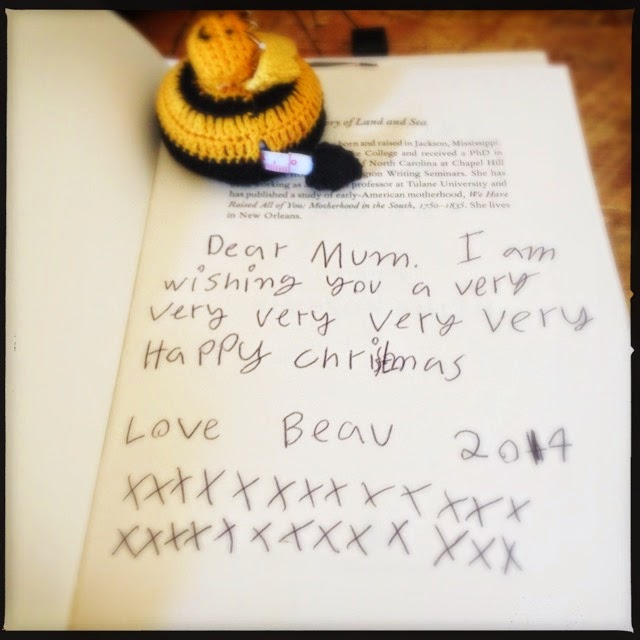 ory of Land and Sea.
orn and raised in Jackson, Mississippi.
College and received a PhD in
of North Carolina at Chapel Hill
Writing Seminars. She has
as professor at Tulane University and
has published a study of early-American motherhood, We Have
Raised All of You: Motherhood in the South, 1750–1835. She lives
in New Orleans.
Dear Mum. I am
wishing you a very
very very very very
Happy christmas
Love Beau 2014
XXXXXXXXXXXXX
XXXXXXXXXXXXX